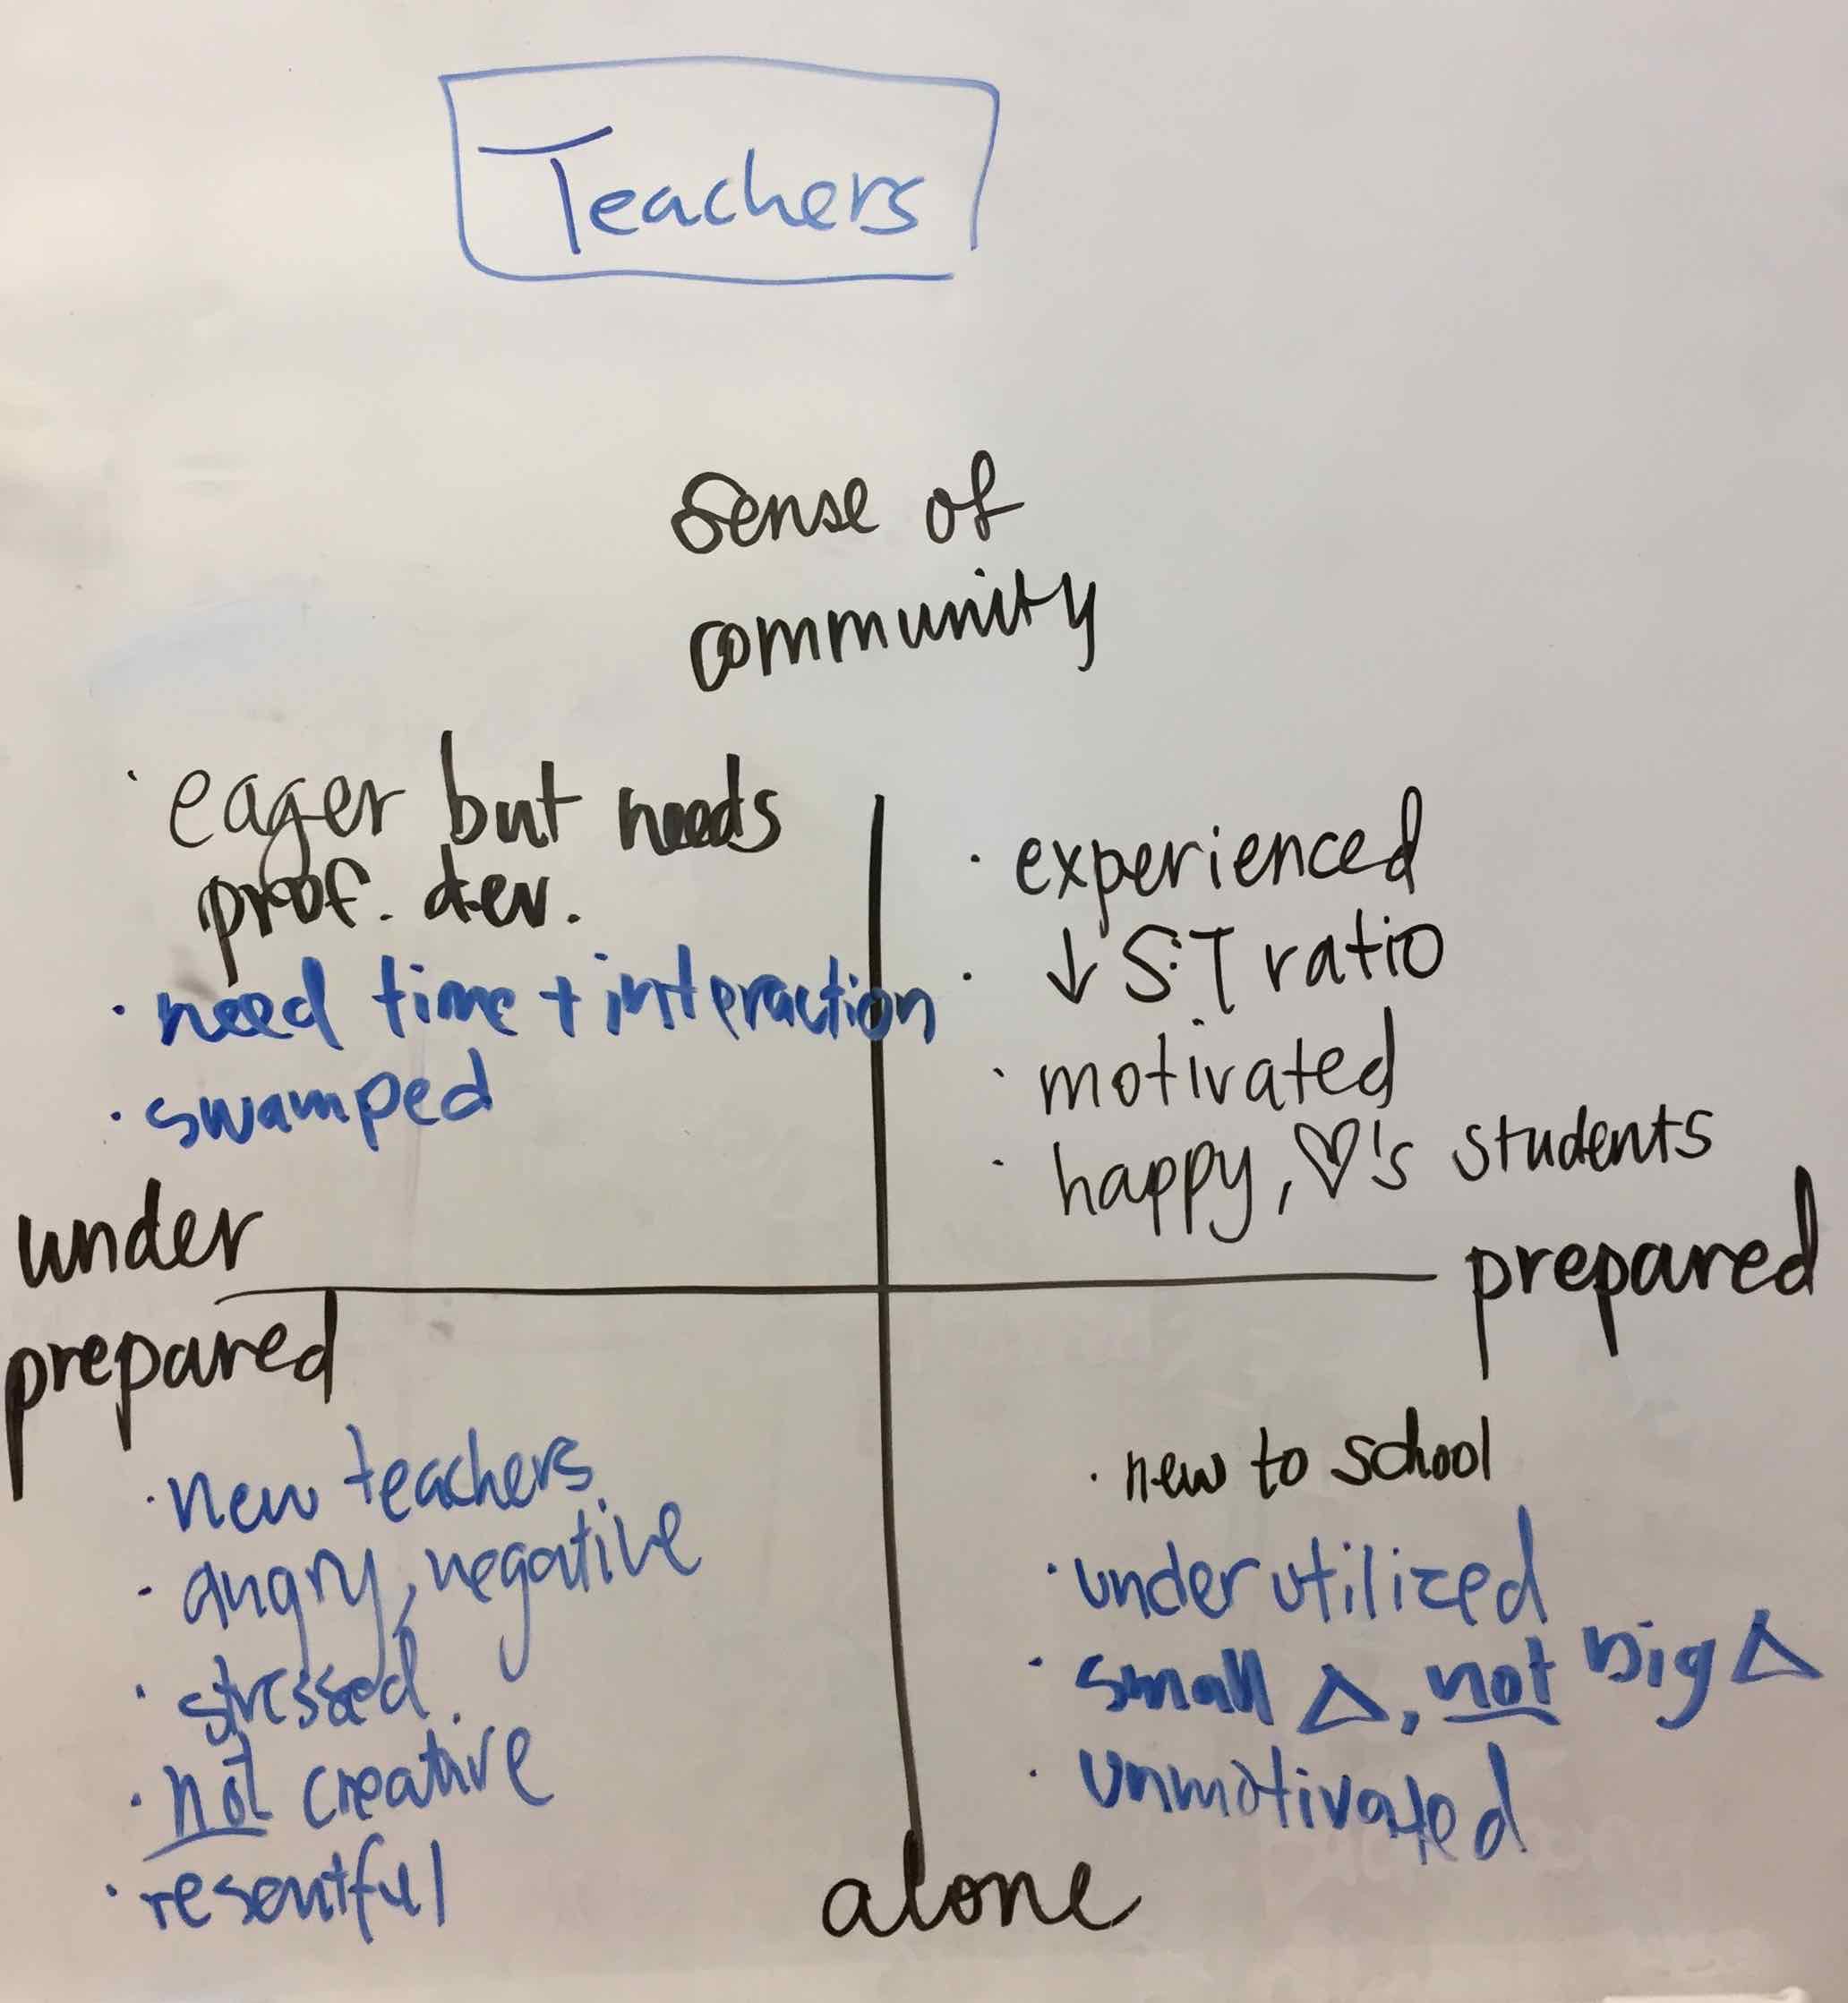 Teachers
Sense of
community
· eager but needs
prof. dev.
· need time + interaction
· swamped
· experienced
· ↓ S:T ratio
· motivated
· happy, ♡'s students
under
prepared
prepared
· new teachers
· angry, negative
· stressed
· not creative
· resentful
· new to school
· underutilized
· small Δ, not big Δ
· unmotivated
alone